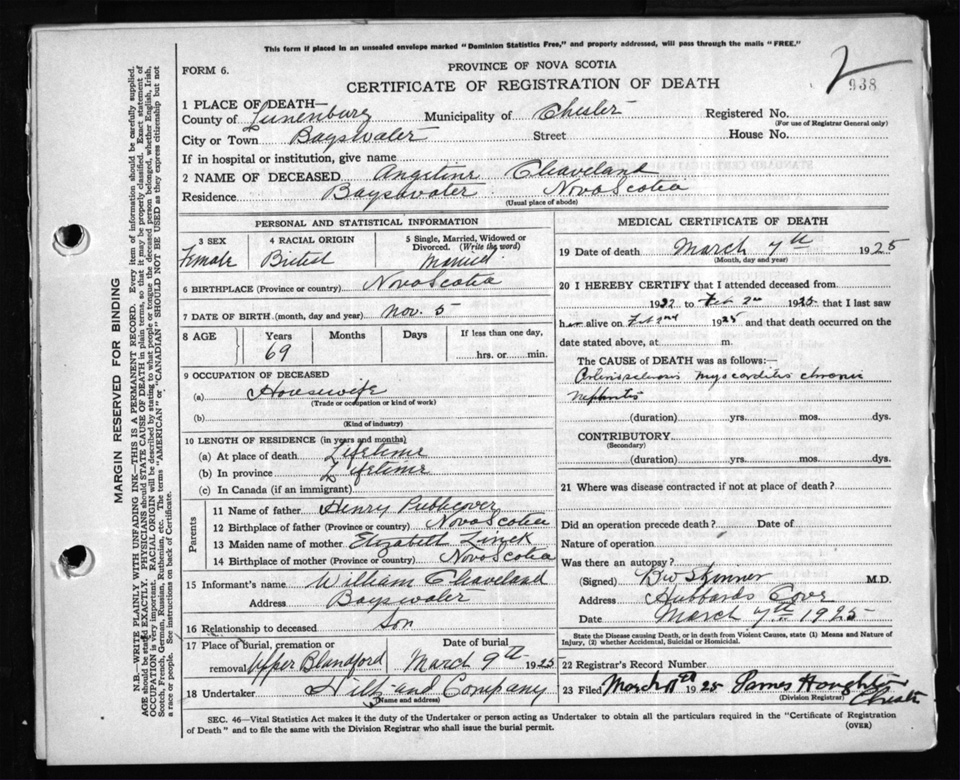 This form if placed in an unsealed envelope marked "Dominion Statistics Free," and properly addressed, will pass through the mails "FREE."
2
938
FORM 6.
PROVINCE OF NOVA SCOTIA
CERTIFICATE OF REGISTRATION OF DEATH
1 PLACE OF DEATH—
County of Lunenburg Municipality of Chester Registered No.
(For use of Registrar General only)
City or Town Bayswater Street House No.
If in hospital or institution, give name
2 NAME OF DECEASED Angeline Cleaveland
Residence Bayswater Nova Scotia
(Usual place of abode)
PERSONAL AND STATISTICAL INFORMATION
3 SEX 4 RACIAL ORIGIN 5 Single, Married, Widowed or Divorced. (Write the word)
Female British Married
6 BIRTHPLACE (Province or country) Nova Scotia
7 DATE OF BIRTH (month, day and year) Nov. 5
8 AGE Years Months Days If less than one day,
69 hrs. or min.
9 OCCUPATION OF DECEASED
(a) Housewife
(Trade or occupation or kind of work)
(b)
(Kind of industry)
10 LENGTH OF RESIDENCE (in years and months)
(a) At place of death Lifetime
(b) In province Lifetime
(c) In Canada (if an immigrant)
Parents
11 Name of father Henry Publicover
12 Birthplace of father (Province or country) Nova Scotia
13 Maiden name of mother Elizabeth Zinck
14 Birthplace of mother (Province or country) Nova Scotia
15 Informant's name William Cleaveland
Address Bayswater
16 Relationship to deceased Son
17 Place of burial, cremation or Date of burial
removal Upper Blandford March 9th 1925
18 Undertaker Hiltz and Company
(Name and address)
MEDICAL CERTIFICATE OF DEATH
19 Date of death March 7th 1925
(Month, day and year)
20 I HEREBY CERTIFY that I attended deceased from
1922 to Feb 2nd 1925 that I last saw
her alive on Feb 2nd 1925 and that death occurred on the
date stated above, at m.
The CAUSE of DEATH was as follows:—
myocarditis chronic
Nephritis
(duration) yrs. mos. dys.
CONTRIBUTORY
(Secondary)
(duration) yrs. mos. dys.
21 Where was disease contracted if not at place of death?
Did an operation precede death? Date of
Nature of operation
Was there an autopsy?
(Signed) Skinner M.D.
Address Hubbards Cove
Date March 7th 1925
State the Disease causing Death, or in death from Violent Causes, state (1) Means and Nature of
Injury, (2) whether Accidental, Suicidal or Homicidal.
22 Registrar's Record Number
23 Filed March 11th 1925 James Houghton
(Division Registrar)
Chester
SEC. 46—Vital Statistics Act makes it the duty of the Undertaker or person acting as Undertaker to obtain all the particulars required in the "Certificate of Registration
of Death" and to file the same with the Division Registrar who shall issue the burial permit.
(OVER)
MARGIN RESERVED FOR BINDING
N.B.—WRITE PLAINLY WITH UNFADING INK—THIS IS A PERMANENT RECORD. Every item of information should be carefully supplied.
AGE should be stated EXACTLY. PHYSICIANS should STATE CAUSE OF DEATH in plain terms, so that it may be properly classified. Exact statement of
OCCUPATION is very important. RACIAL ORIGIN will be described by stating to what people or tongue the deceased person belonged, whether English, Irish,
Scotch, French, German, Russian, Ruthenian, etc. The terms "AMERICAN" or "CANADIAN" SHOULD NOT BE USED as they express citizenship but not
a race or people. See instructions on back of Certificate.